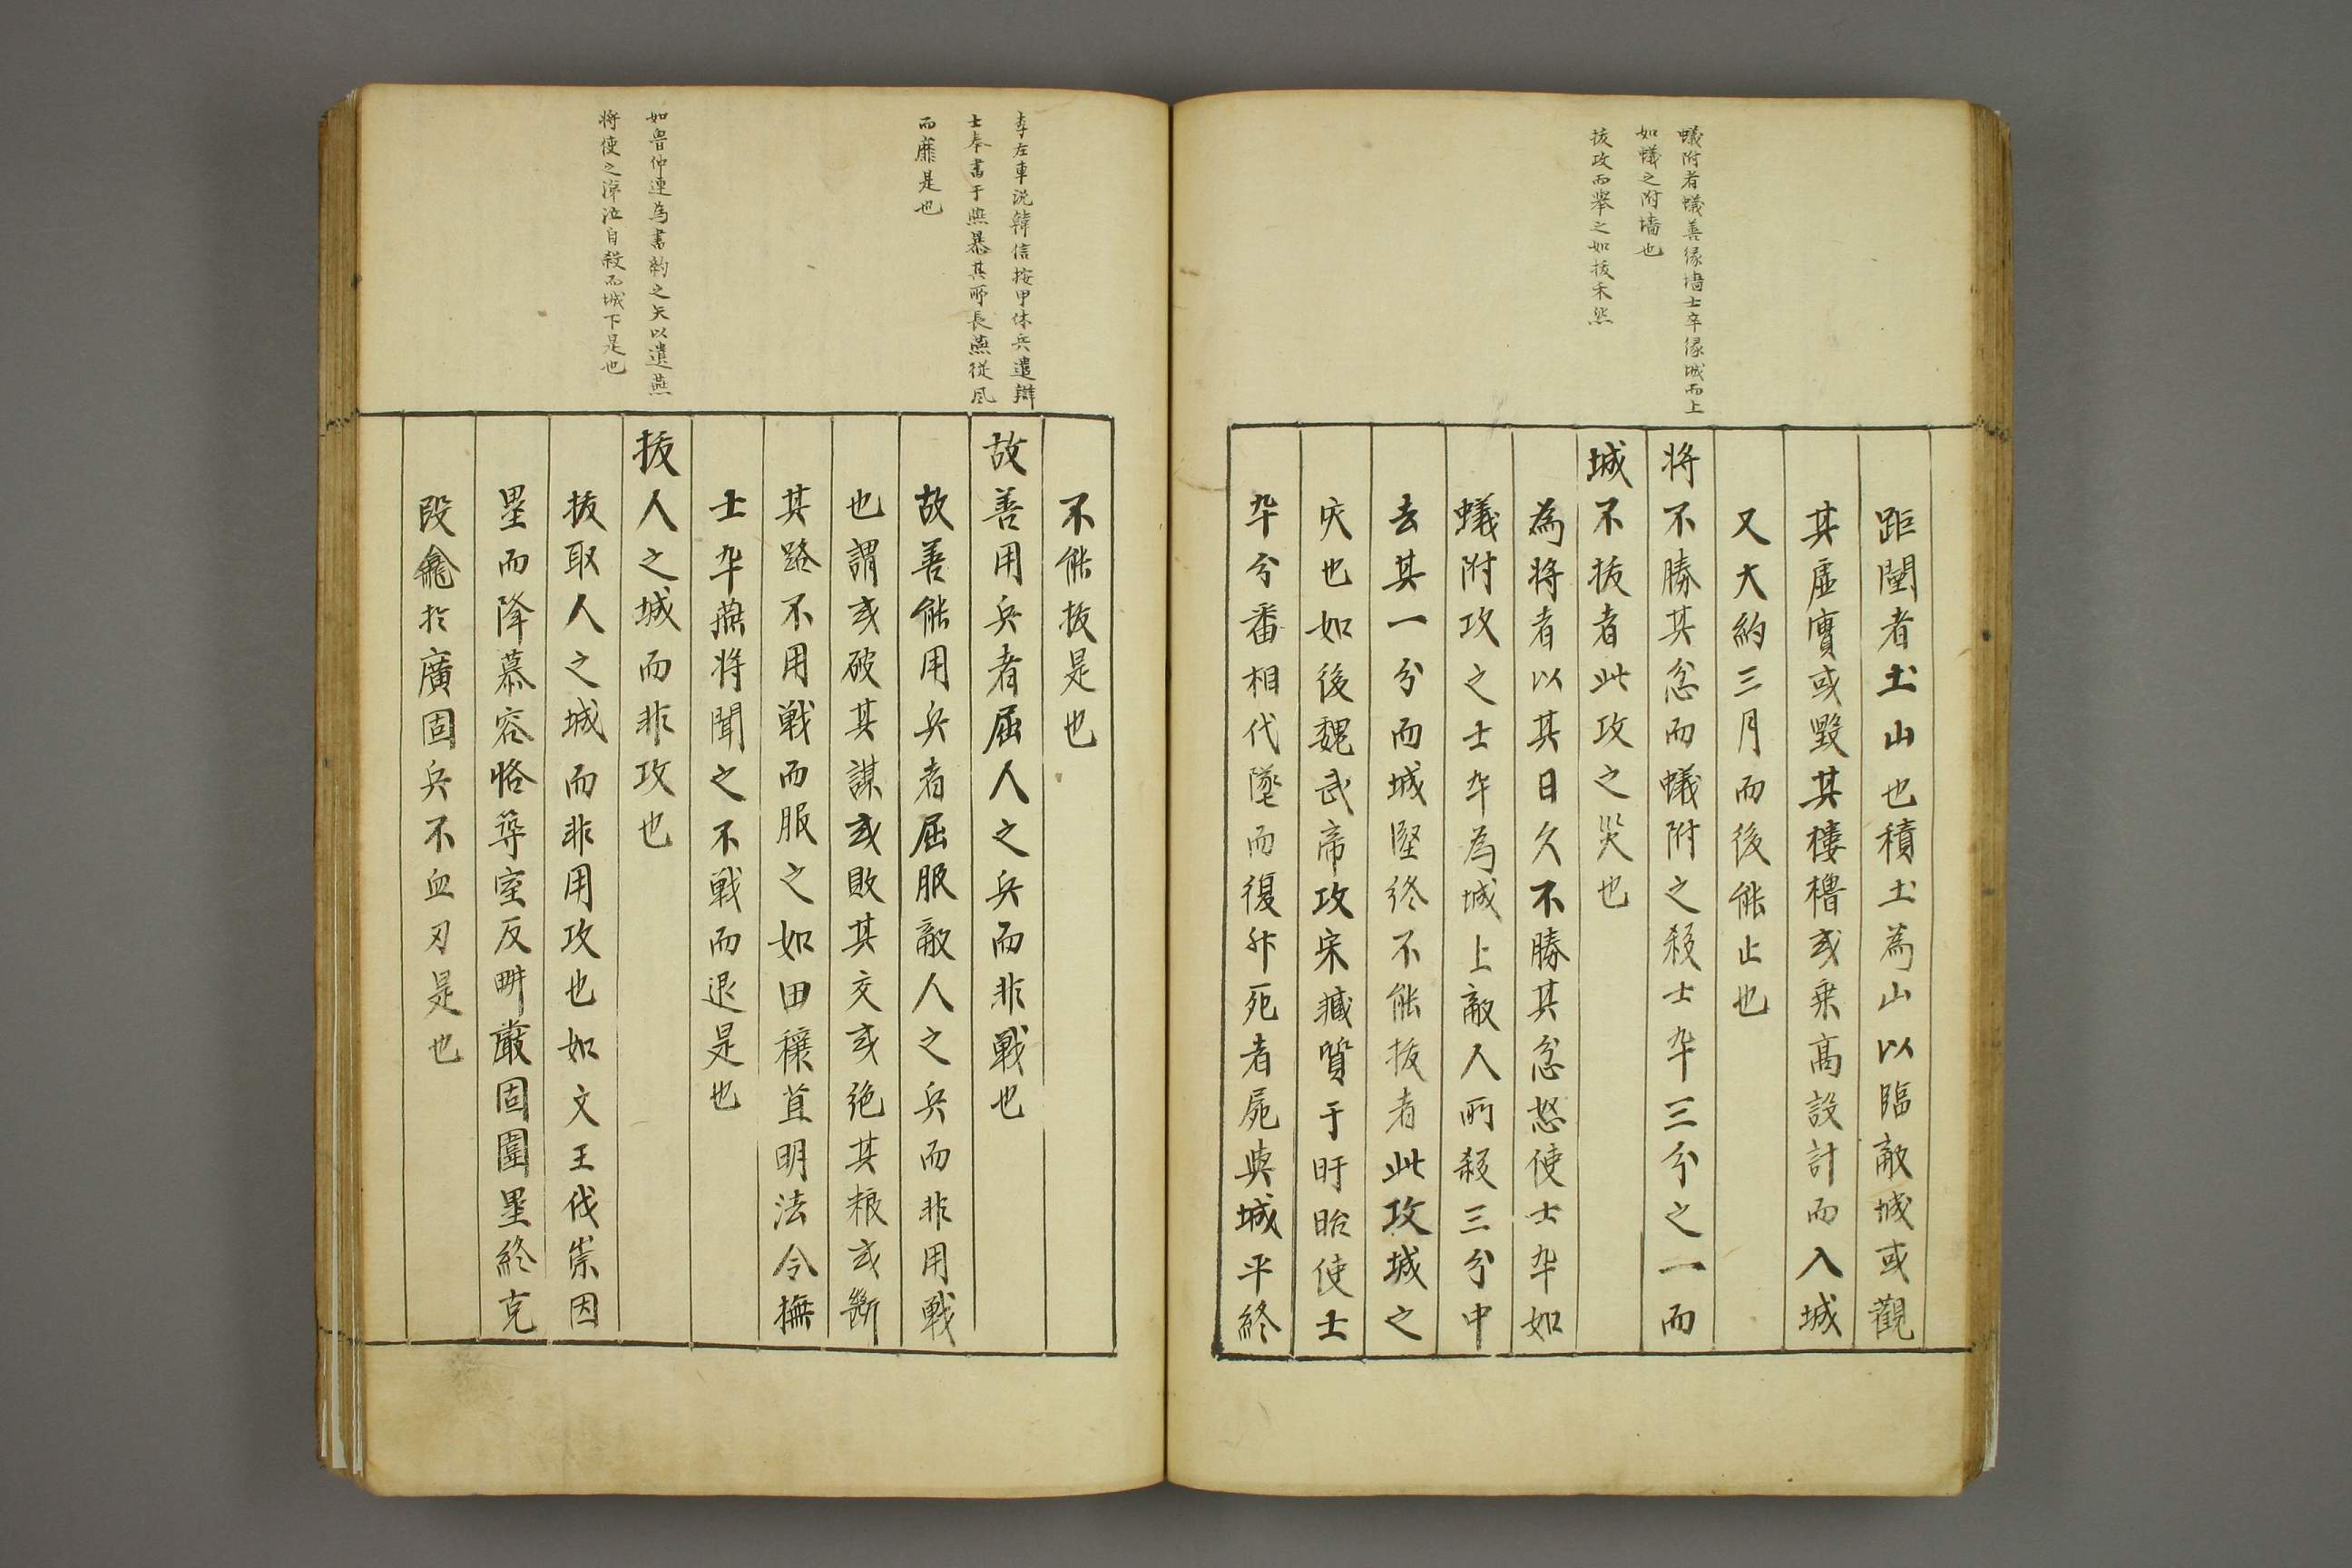 蟻附者蟻善緣墻士卒緣城而上
如蟻之附墻也
拔攻而舉之如拔禾然
距闉者土山也積土為山以臨敵城或觀
其虛實或毀其樓櫓或乗高設計而入城
又大約三月而後能止也
将不勝其忿而蟻附之殺士卒三分之一而
城不拔者此攻之災也
為将者以其日久不勝其忿怒使士卒如
蟻附攻之士卒為城上敵人所殺三分中
去其一分而城堅終不能拔者此攻城之
灾也如後魏武帝攻宋臧質于盱眙使士
卒分番相代墜而復升死者屍與城平終
李左車說韓信按甲休兵遣辯
士奉書于燕暴其所長燕從風
而靡是也
如魯仲連為書約之矢以遺燕
将使之涕泣自殺而城下是也
不能拔是也
故善用兵者屈人之兵而非戰也
故善能用兵者屈服敵人之兵而非用戰
也謂或破其謀或敗其交或絶其粮或斷
其路不用戰而服之如田穰苴明法令撫
士卒燕将聞之不戰而退是也
拔人之城而非攻也
拔取人之城而非用攻也如文王伐崇因
壘而降慕容恪築室反畊嚴固圍壘終克
段龕於廣固兵不血刃是也